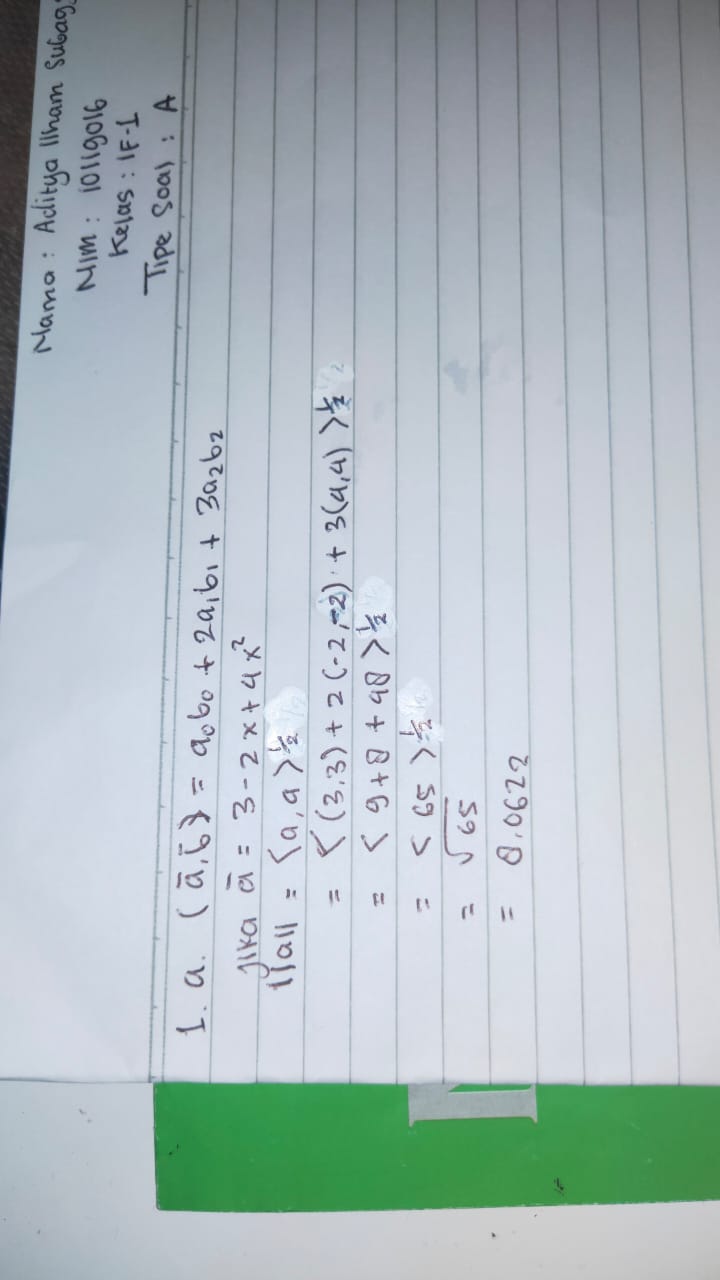 Nama : Aditya Ilham Subag
NIM : 10119016
Kelas : IF-1
Tipe Soal : A
1. a. ⟨ā,b̄⟩ = a₀b₀ + 2a₁b₁ + 3a₂b₂
jika ā = 3 - 2x + 4x²
||a|| = <a,a>½
= <(3,3) + 2(-2,-2) + 3(4,4)>½
= <9+8+48>½
= <65>½
= √65
= 8.0622